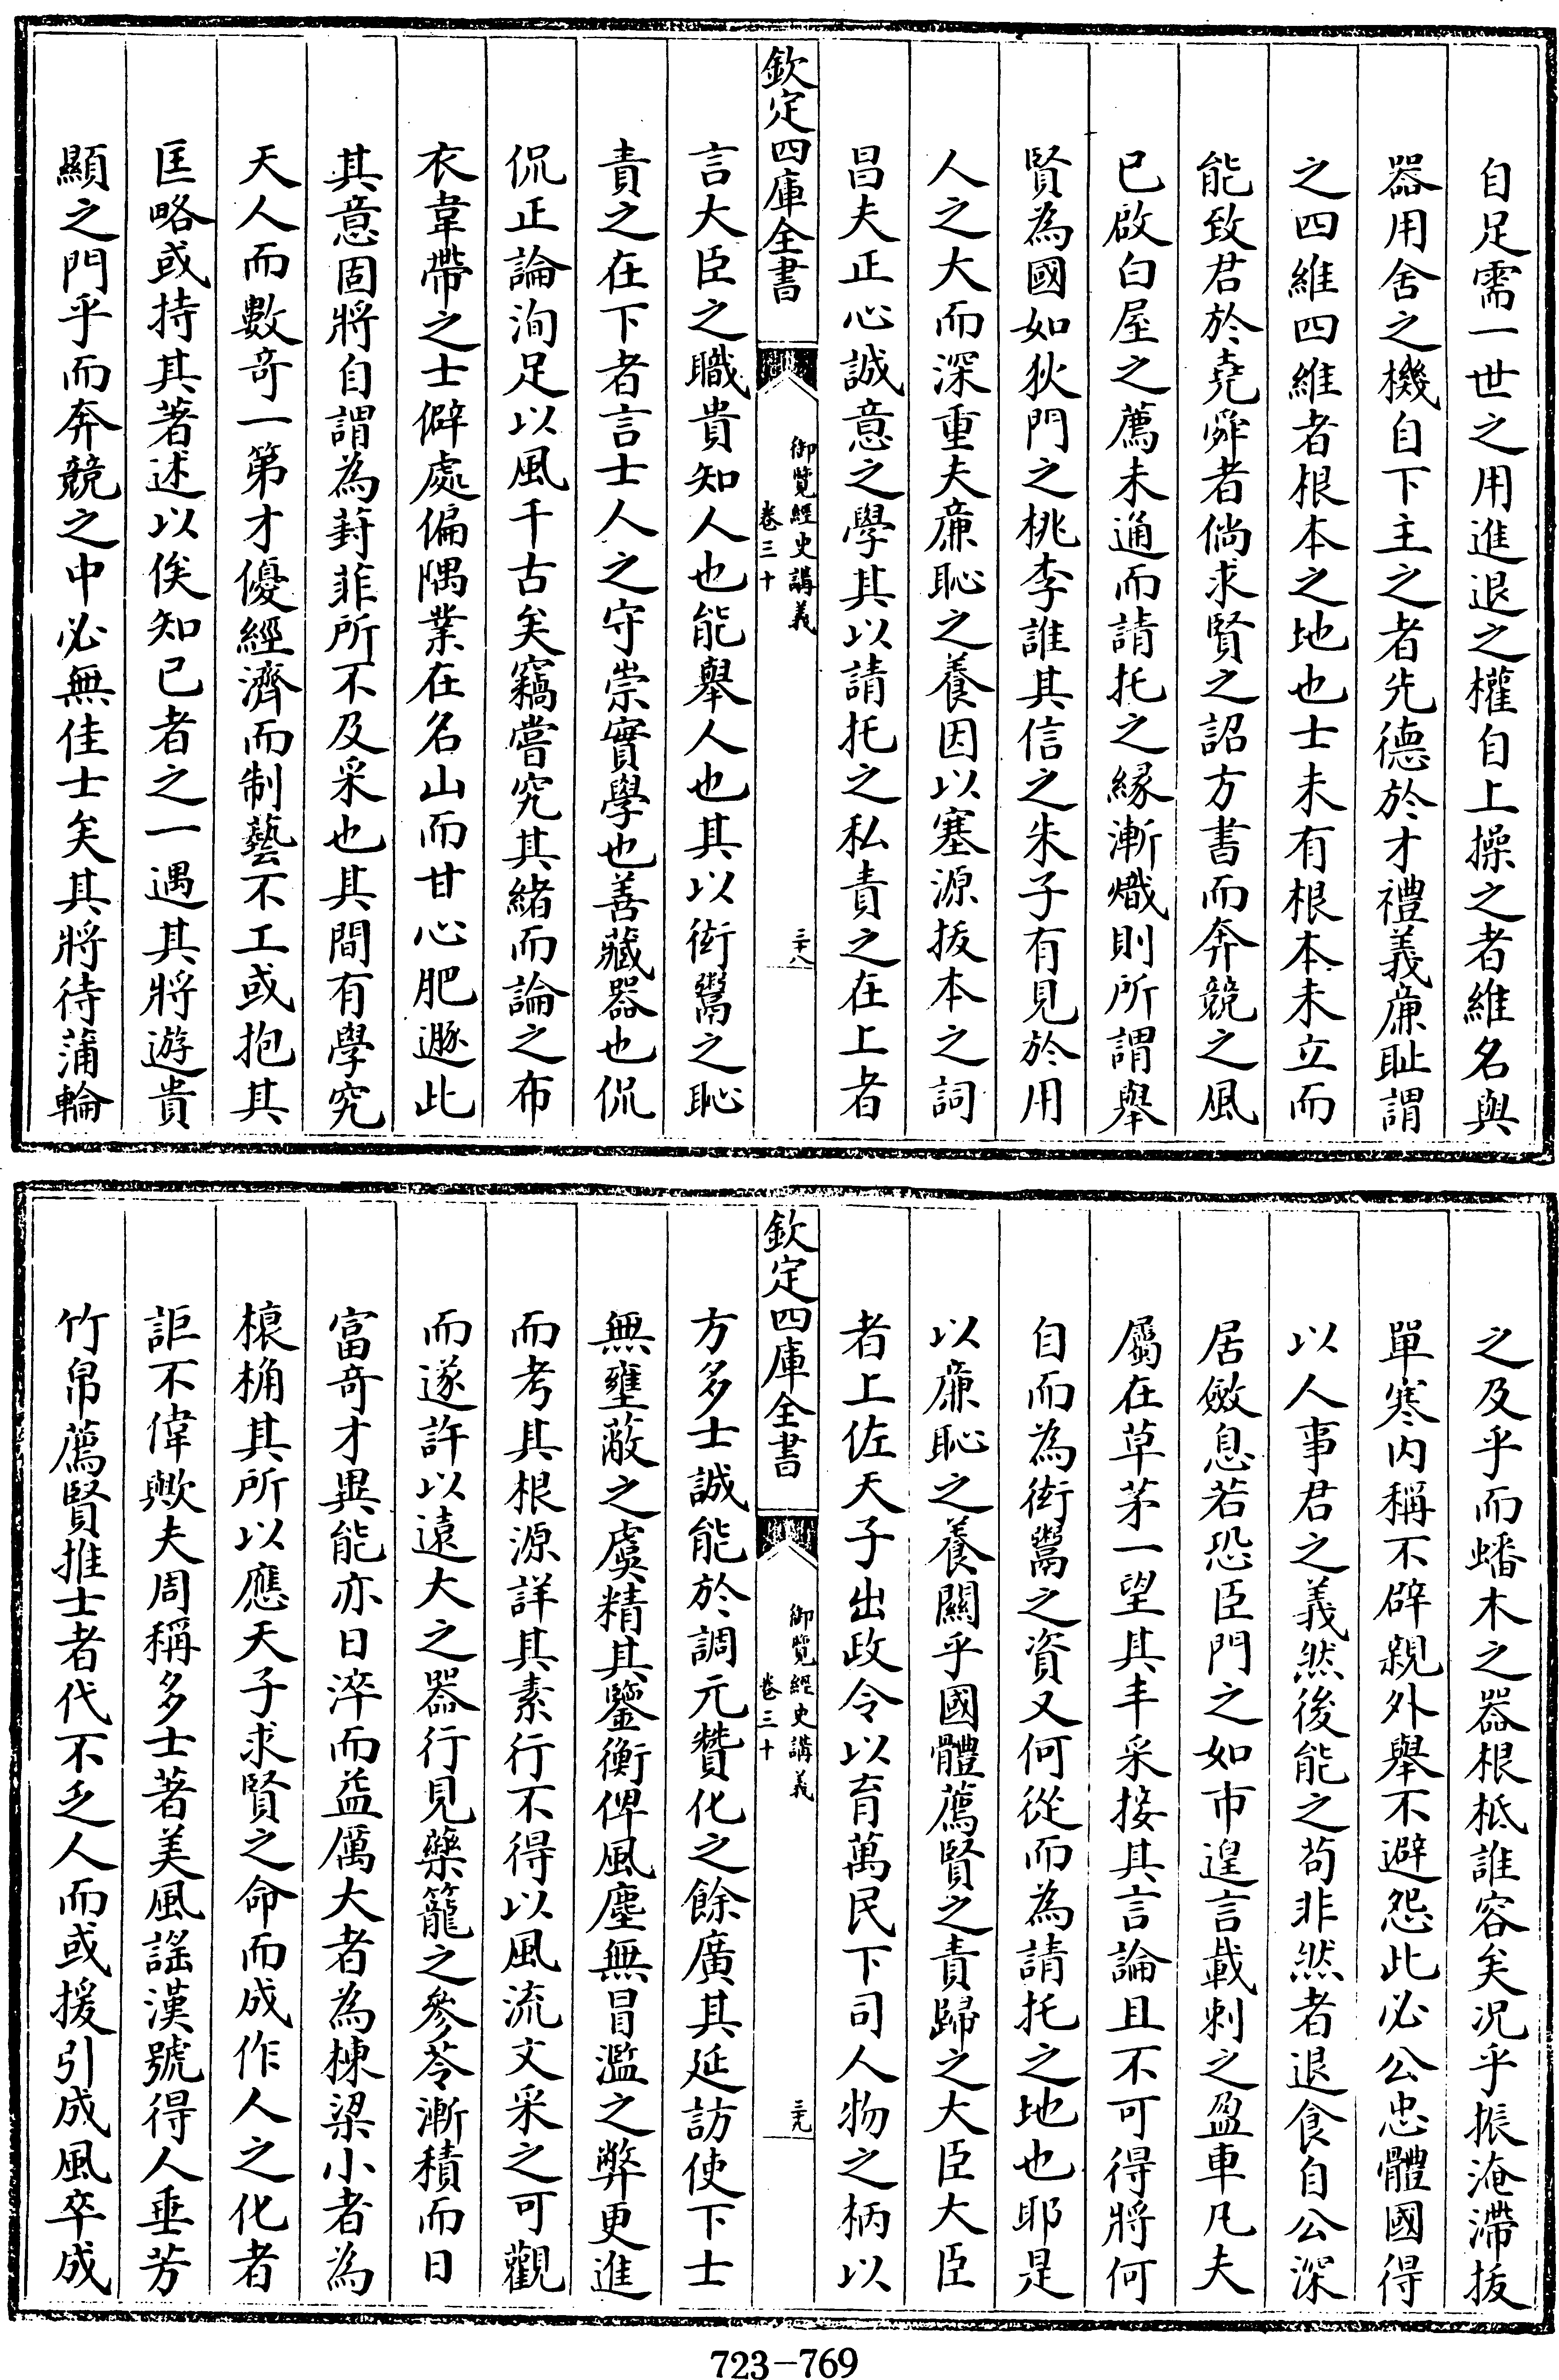 自足需一世之用進退之權自上操之者維名與
器用舍之機自下主之者先德於才禮義廉耻謂
之四維四維者根本之地也士未有根本未立而
能致君於堯舜者倘求賢之詔方書而奔競之風
已啟白屋之薦未通而請托之縁漸熾則所謂舉
賢為國如狄門之桃李誰其信之朱子有見於用
人之大而深重夫亷恥之養因以塞源拔本之詞
昌夫正心誠意之學其以請托之私責之在上者
欽定四庫全書
御覽經史講義
卷三十
三十八
言大臣之職貴知人也能舉人也其以衒鬻之恥
責之在下者言士人之守崇實學也善藏器也侃
侃正論洵足以風千古矣竊嘗究其緒而論之布
衣韋帶之士僻處偏隅業在名山而甘心肥遯此
其意固將自謂為葑菲所不及采也其間有學究
天人而數奇一第才優經濟而制藝不工或抱其
匡略或持其著述以俟知已者之一遇其將遊貴
顯之門乎而奔競之中必無佳士矣其將待蒲輪
之及乎而蟠木之器根柢誰容矣况乎振淹滯拔
單寒内稱不辟親外舉不避怨此必公忠體國得
以人事君之義然後能之茍非然者退食自公深
居斂息若恐臣門之如市遑言載刺之盈車凡夫
屬在草茅一望其丰采接其言論且不可得將何
自而為衒鬻之資又何從而為請托之地也耶是
以亷恥之養關乎國體薦賢之責歸之大臣大臣
者上佐天子出政令以育萬民下司人物之柄以
欽定四庫全書
御覽經史講義
卷三十
三十九
方多士誠能於調元贊化之餘廣其延訪使下士
無壅蔽之虞精其鑒衡俾風塵無冒濫之弊更進
而考其根源詳其素行不得以風流文采之可觀
而遂許以遠大之器行見藥籠之參苓漸積而日
富奇才異能亦日淬而益厲大者為棟梁小者為
榱桷其所以應天子求賢之命而成作人之化者
詎不偉歟夫周稱多士著美風謡漢號得人垂芳
竹帛薦賢推士者代不乏人而或援引成風卒成
723—769